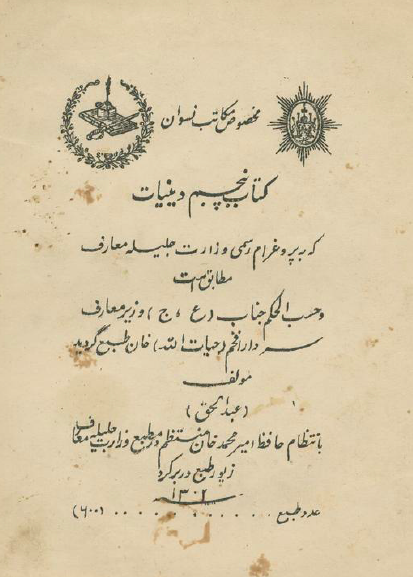 مخصوص مکاتب نسوان
کتاب پنجم دینیات
که به پروغرام رسمی وزارت جلیله معارف
مطابق است
و حسب الحکم جناب (ع ، ج) وزیر معارف
سردار افخم (حیات الله) خان طبع گردید
مولف
(عبدالحق)
بانتظام حافظ امیر محمد خان منتظم در مطبع وزارت جلیله معارف
زیور طبع در بر کرد
سنه ۱۳۰۲
عدد طبع . . . . . . . . . . . (۶۰۰)